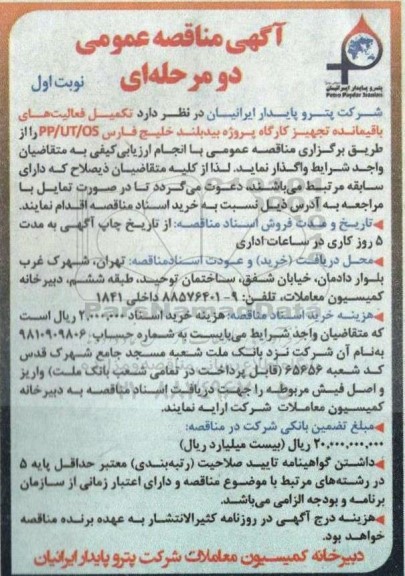 آگهی مناقصه عمومی
دو مرحله‌ای
نوبت اول
پترو پایدار ایرانیان
Petro Paydar Iranian
شرکت پترو پایدار ایرانیان در نظر دارد تکمیل فعالیت‌های
باقیمانده تجهیز کارگاه پروژه بیدبلند خلیج فارس PP/UT/OS را از
طریق برگزاری مناقصه عمومی با انجام ارزیابی‌کیفی به متقاضیان
واجد شرایط واگذار نماید. لذا از کلیه متقاضیان ذیصلاح که دارای
سابقه مرتبط می‌باشند، دعوت می‌گردد تا در صورت تمایل با
مراجعه به آدرس ذیل نسبت به خرید اسناد مناقصه اقدام نمایند.
◄تاریخ و مدت فروش اسناد مناقصه: از تاریخ چاپ آگهی به مدت
۵ روز کاری در ساعات اداری
◄محل دریافت (خرید) و عودت اسناد مناقصه: تهران، شهرک غرب
بلوار دادمان، خیابان شفق، ساختمان توحید، طبقه ششم، دبیرخانه
کمیسیون معاملات، تلفن: ۹-۸۸۵۷۶۴۰۱ داخلی ۱۸۴۱
◄هزینه خرید اسناد مناقصه: هزینه خرید اسناد ۲,۰۰۰,۰۰۰ ریال است
که متقاضیان واجد شرایط می‌بایست به شماره حساب: ۹۸۱۰۹۰۹۸۰۶
به‌نام آن شرکت نزد بانک ملت شعبه مسجد جامع شهرک قدس
کد شعبه ۶۵۶۵۶ (قابل پرداخت در تمامی شعب بانک ملت) واریز
و اصل فیش مربوطه را جهت دریافت اسناد مناقصه به دبیرخانه
کمیسیون معاملات شرکت ارایه نمایند.
◄مبلغ تضمین بانکی شرکت در مناقصه:
۲۰,۰۰۰,۰۰۰,۰۰۰ ریال (بیست میلیارد ریال)
◄داشتن گواهینامه تایید صلاحیت (رتبه‌بندی) معتبر حداقل پایه ۵
در رشته‌های مرتبط با موضوع مناقصه و دارای اعتبار زمانی از سازمان
برنامه و بودجه الزامی می‌باشد.
◄هزینه درج آگهی در روزنامه کثیرالانتشار به عهده برنده مناقصه
خواهد بود.
دبیرخانه کمیسیون معاملات شرکت پترو پایدار ایرانیان